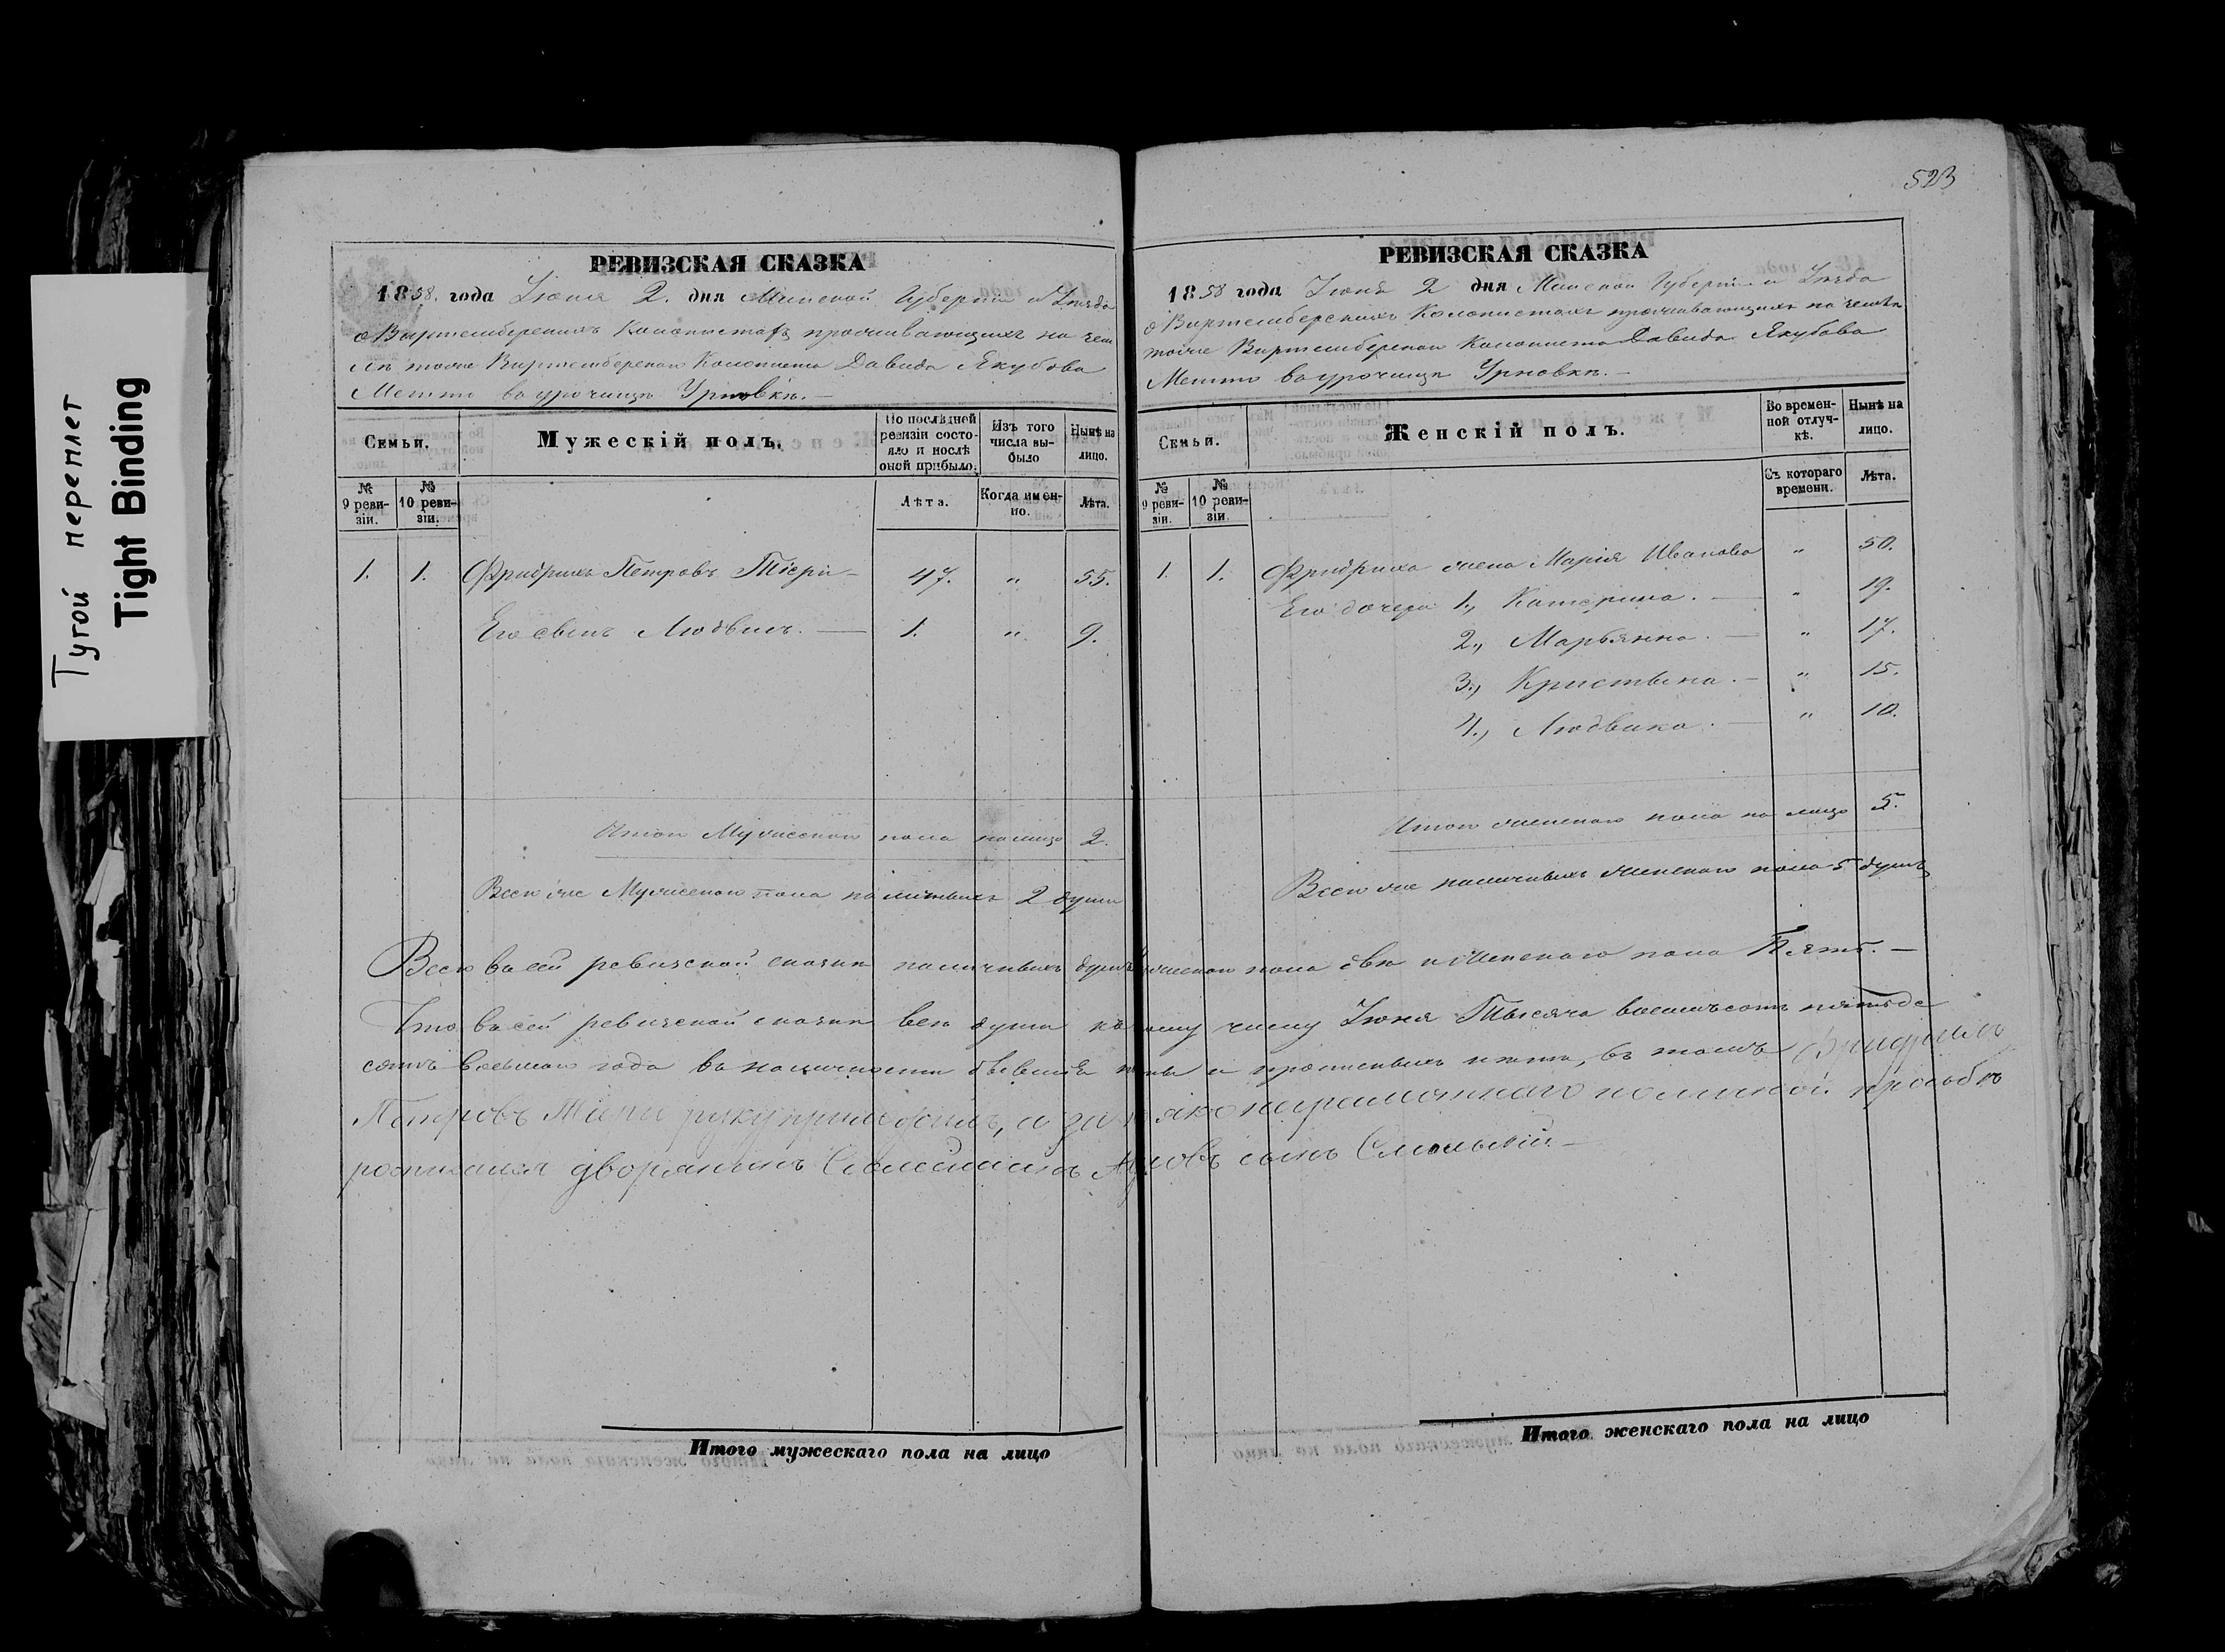 Тугой переплет
Tight Binding
523
РЕВИЗСКАЯ СКАЗКА
1858. года Іюня 2. дня Минской Губерніи и Уезда
о Виртембергскихъ Колонистахъ проживающихъ на
Виртембергскаго Колониста Давида Якубова
Метто въ урочище Урновкѣ. —
Семьи.
Мужескій полъ.
По послѣдней ревизіи состояло и послѣ оной прибыло.
Изъ того числа выбыло
Нынѣ на лицо.
№ 9 ревизіи.
№ 10 ревизіи.
Лѣта.
Когда именно.
Лѣта.
1. 1. Фридрихъ Петровъ Тіери — 47. " 55.
Его сынъ Людвигъ. — 1. " 9.
Итого Мужескаго пола налицо 2.
Всего же Мужескаго пола наличныхъ 2 души
РЕВИЗСКАЯ СКАЗКА
1858 года Іюня 2 дня Минской Губерніи и Уезда
о Виртембергскихъ Колонистахъ проживающихъ на
Виртембергскаго Колониста Давида Якубова
Метто въ урочище Урновкѣ. —
Семьи.
Женскій полъ.
Во временной отлучкѣ.
Нынѣ на лицо.
№ 9 ревизіи.
№ 10 ревизіи.
Съ котораго времени.
Лѣта.
1. 1. Фридриха жена Марія Иванова " 50.
Его дочери 1., Катерина. — " 19.
2., Марьянна. — " 17.
3., Кристына. — " 15.
4., Людвика. — " 10.
Итого женскаго пола на лицо 5.
Всего же наличныхъ женскаго пола 5 душъ
Всего въ сей ревизской сказкѣ наличныхъ душъ мужескаго пола двѣ и женскаго пола Пять. —
Что въ сей ревизской сказкѣ всѣ души къ числу Іюня Тысяча восемьсотъ пятьде
сятъ восьмаго года въ наличности и прописныхъ нѣтъ, въ томъ Фридрихъ
Петровъ Тіери руку приложилъ, а за неграмотнаго по личной просьбѣ
росписался дворянинъ сынъ
Итого мужескаго пола на лицо
Итого женскаго пола на лицо